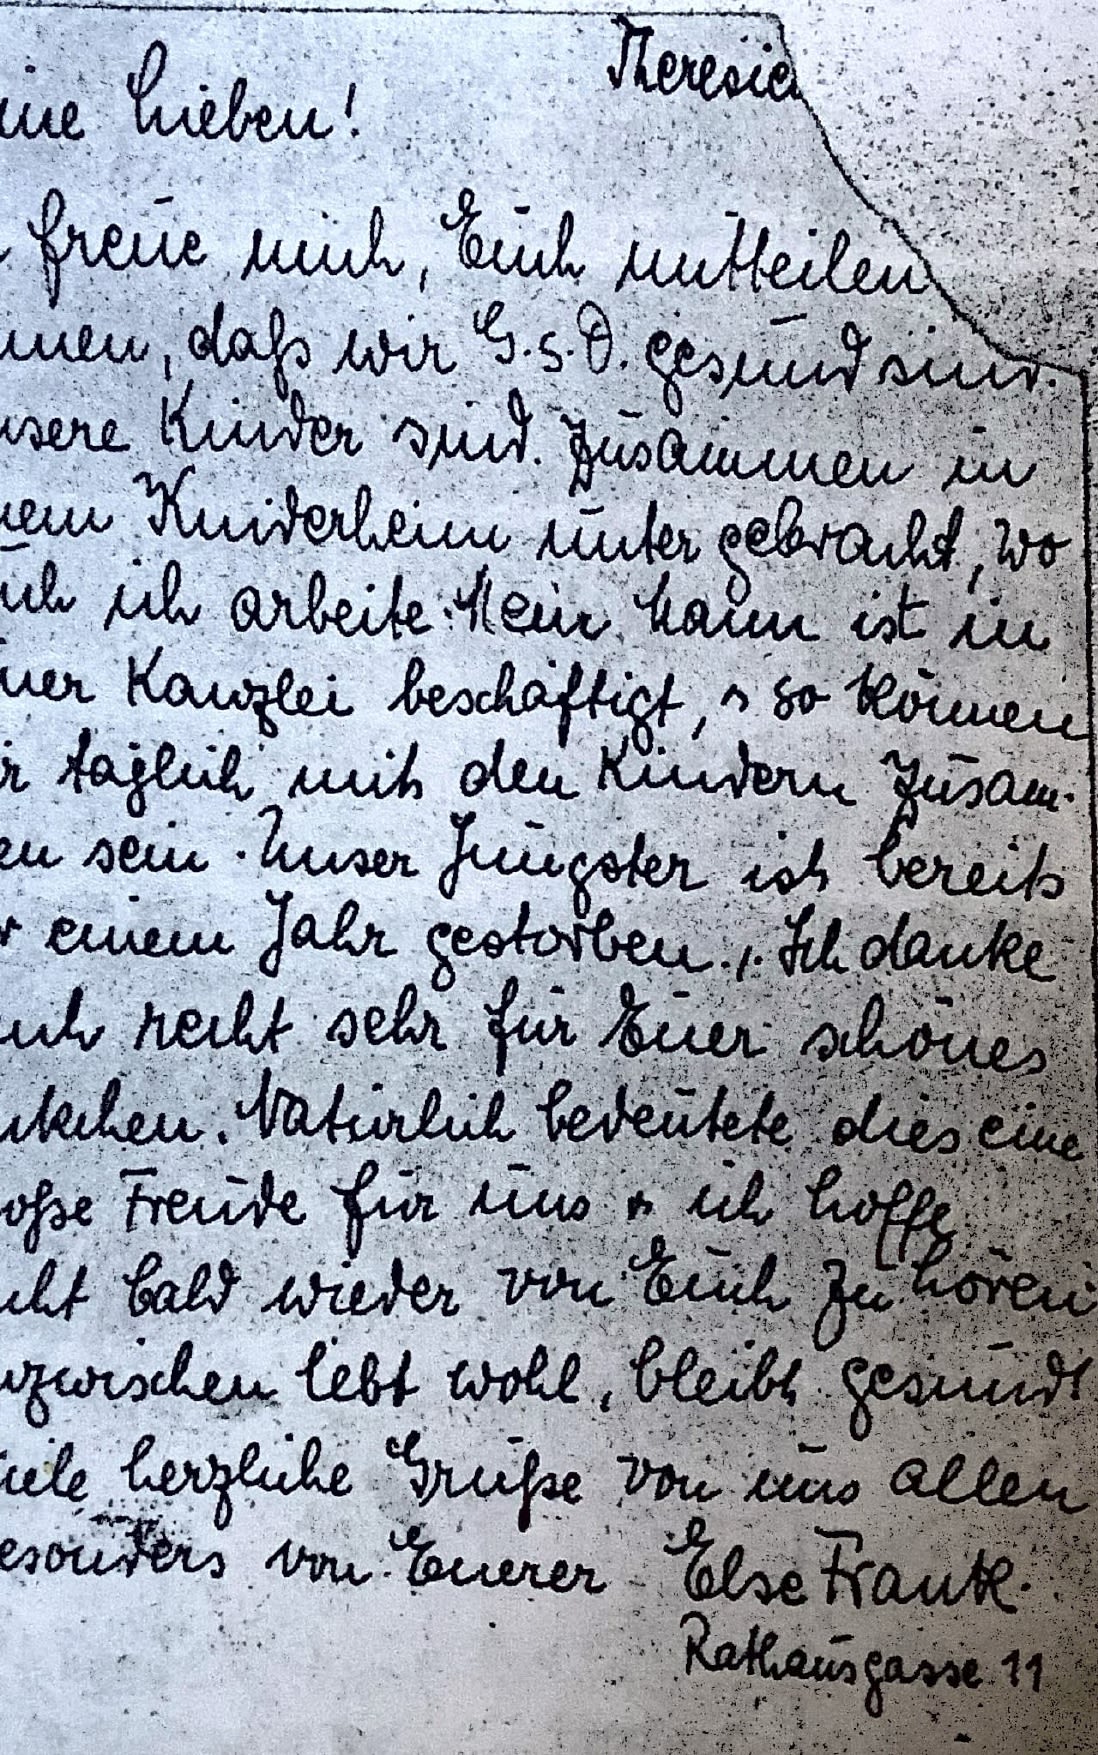 Theresie
ine Lieben!
freue mich, Euch mitteilen
nnen, daß wir G.s.D. gesund sind.
nsere Kinder sind zusammen in
nem Kinderheim untergebracht, wo
uch ich arbeite. Mein Mann ist in
ner Kanzlei beschäftigt, so können
ir täglich mit den Kindern zusam-
en sein. Unser Jüngster ist bereits
r einem Jahr gestorben. Ich danke
uch recht sehr für Euer schönes
ckchen. Natürlich bedeutete dies eine
oße Freude für uns & ich hoffe
cht bald wieder von Euch zu hören
nzwischen lebt wohl, bleibt gesund!
iele herzliche Grüße von uns allen
esonders von Euerer Else Frank.
Rathausgasse 11